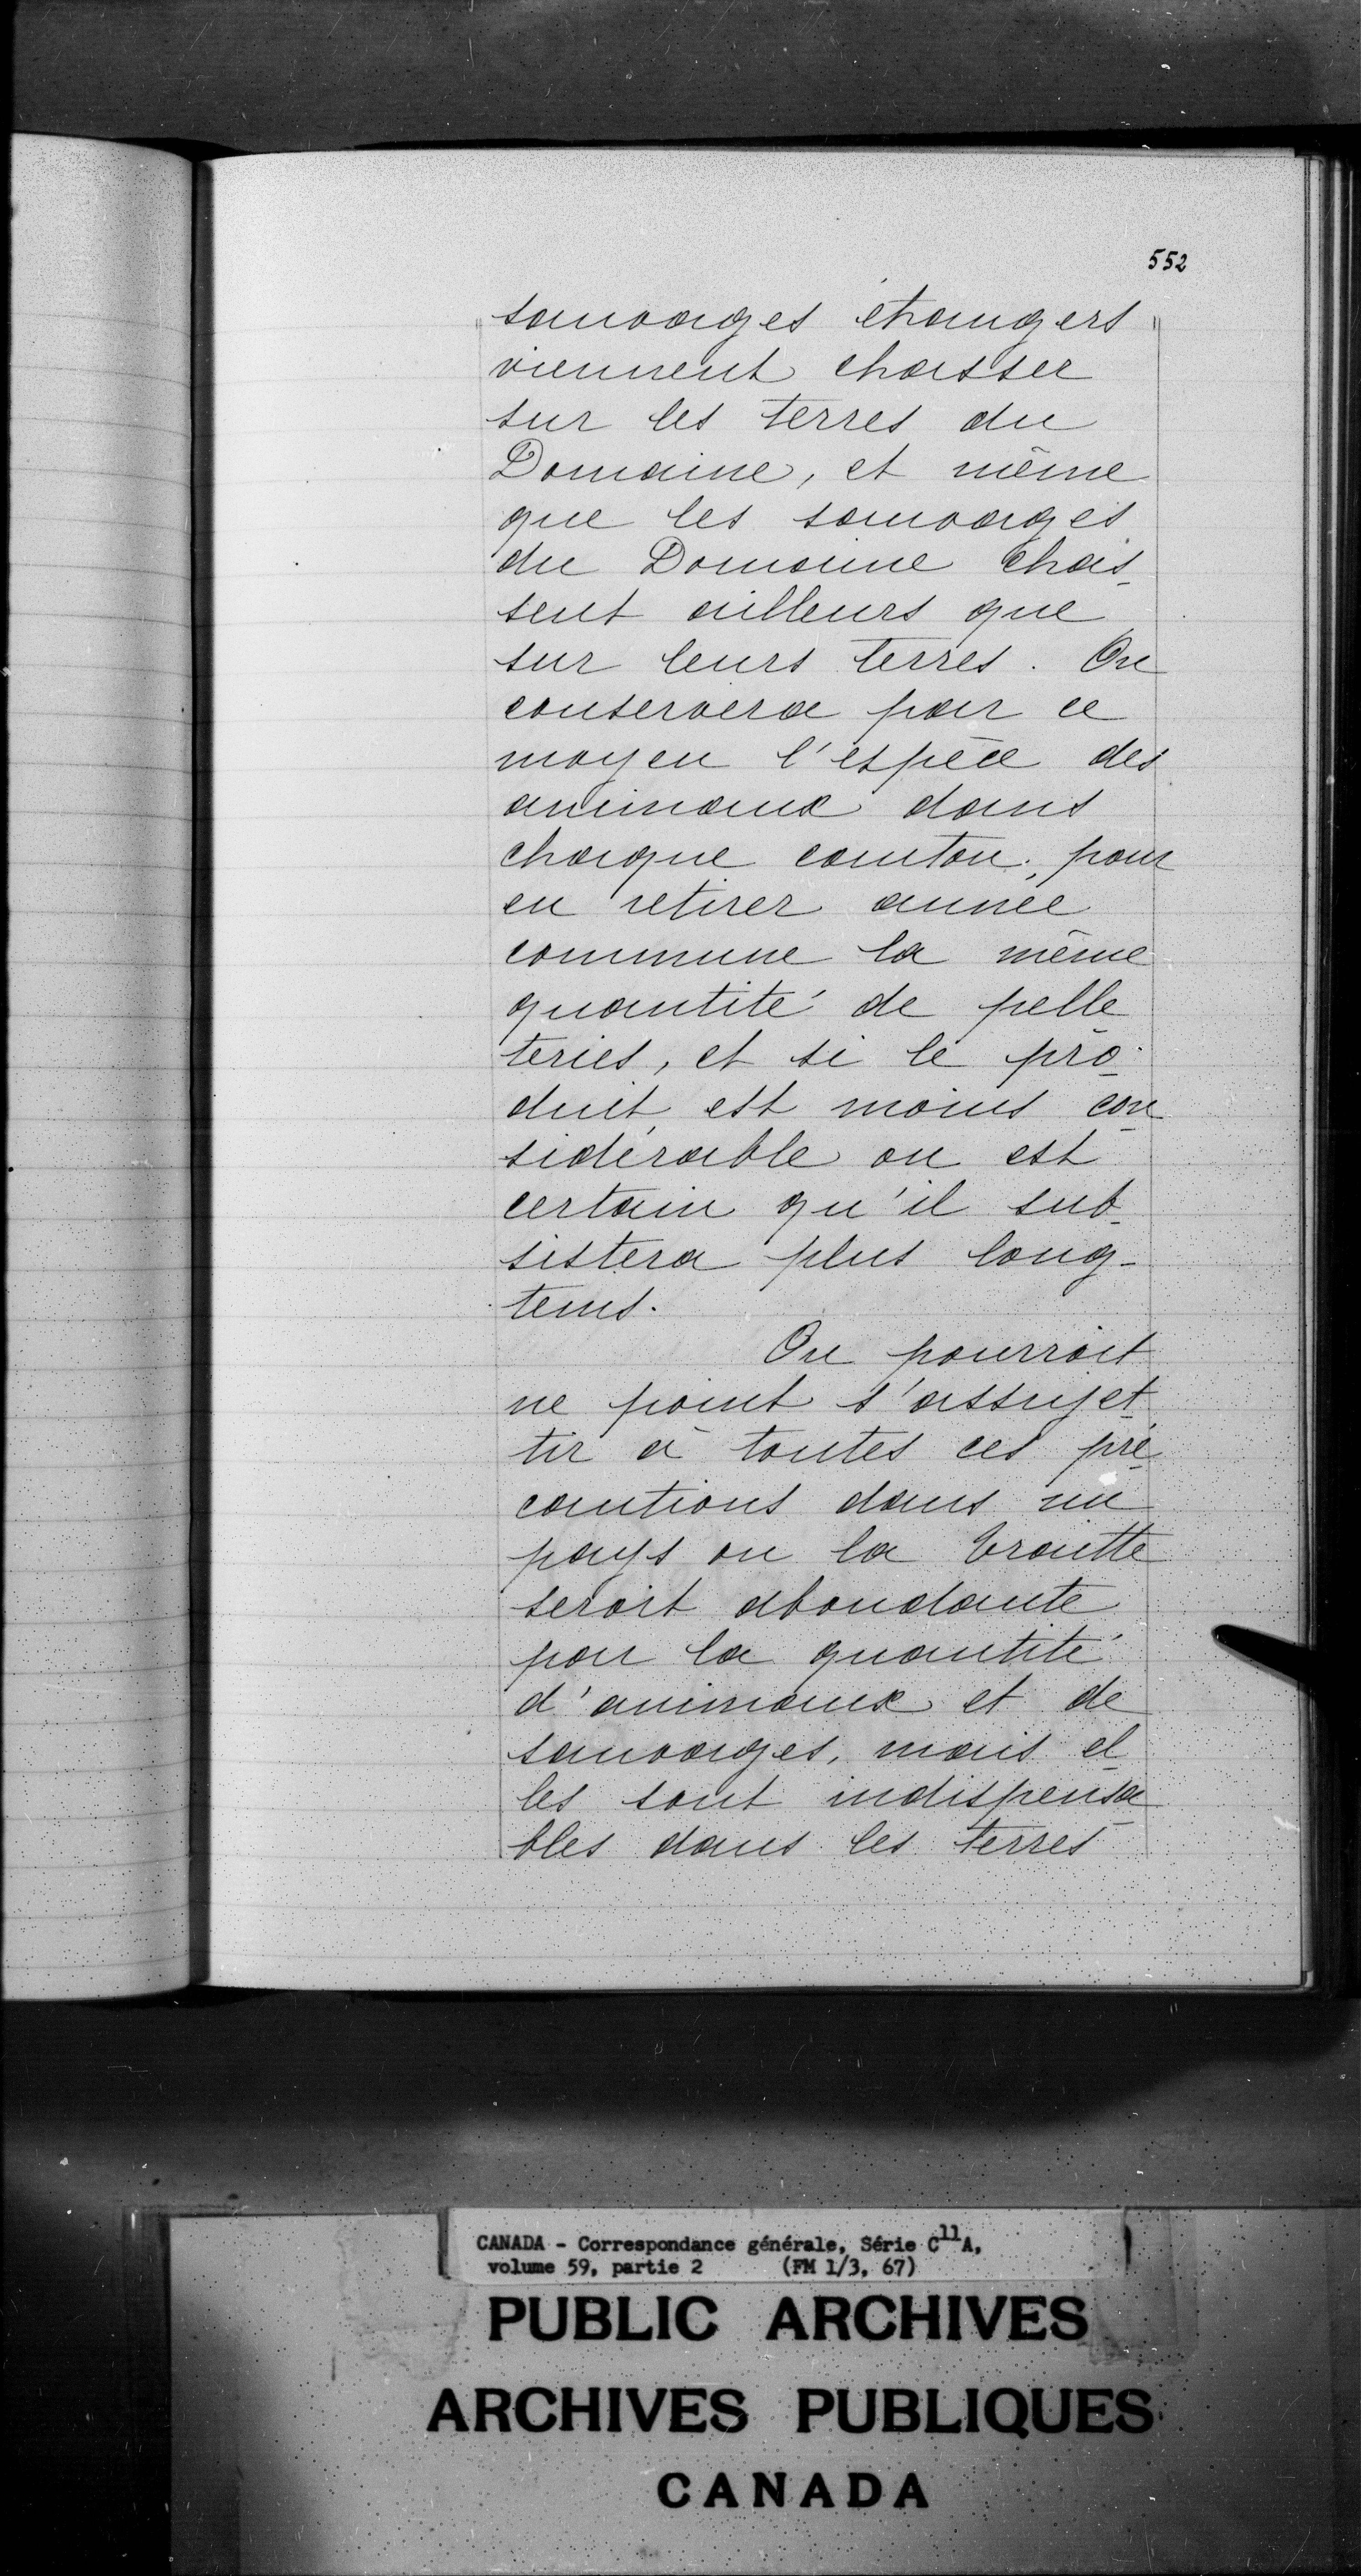 552
sauvages étrangers
viennent chasser
sur les terres du
Domaine, et même
que les sauvages
du Domaine chas-
sent ailleurs que
sur leurs terres. On
conservera par ce
moyen l'espèce des
animaux dans
chaque canton, pour
en retirer année
commune la même
quantité de pelle
teries, et si le pro-
duit est moins con
sidérable on est
certain qu'il sub-
sistera plus long-
tems.
On pourroit
ne point s'assujet
tir à toutes ces pré
cautions dans un
pays ou la traitte
seroit abondante
par la quantité
d'animaux et de
sauvages, mais el
les sont indispensa
bles dans les terres
CANADA - Correspondance générale, Série C11A,
volume 59, partie 2 (FM 1/3, 67)
PUBLIC ARCHIVES
ARCHIVES PUBLIQUES
CANADA